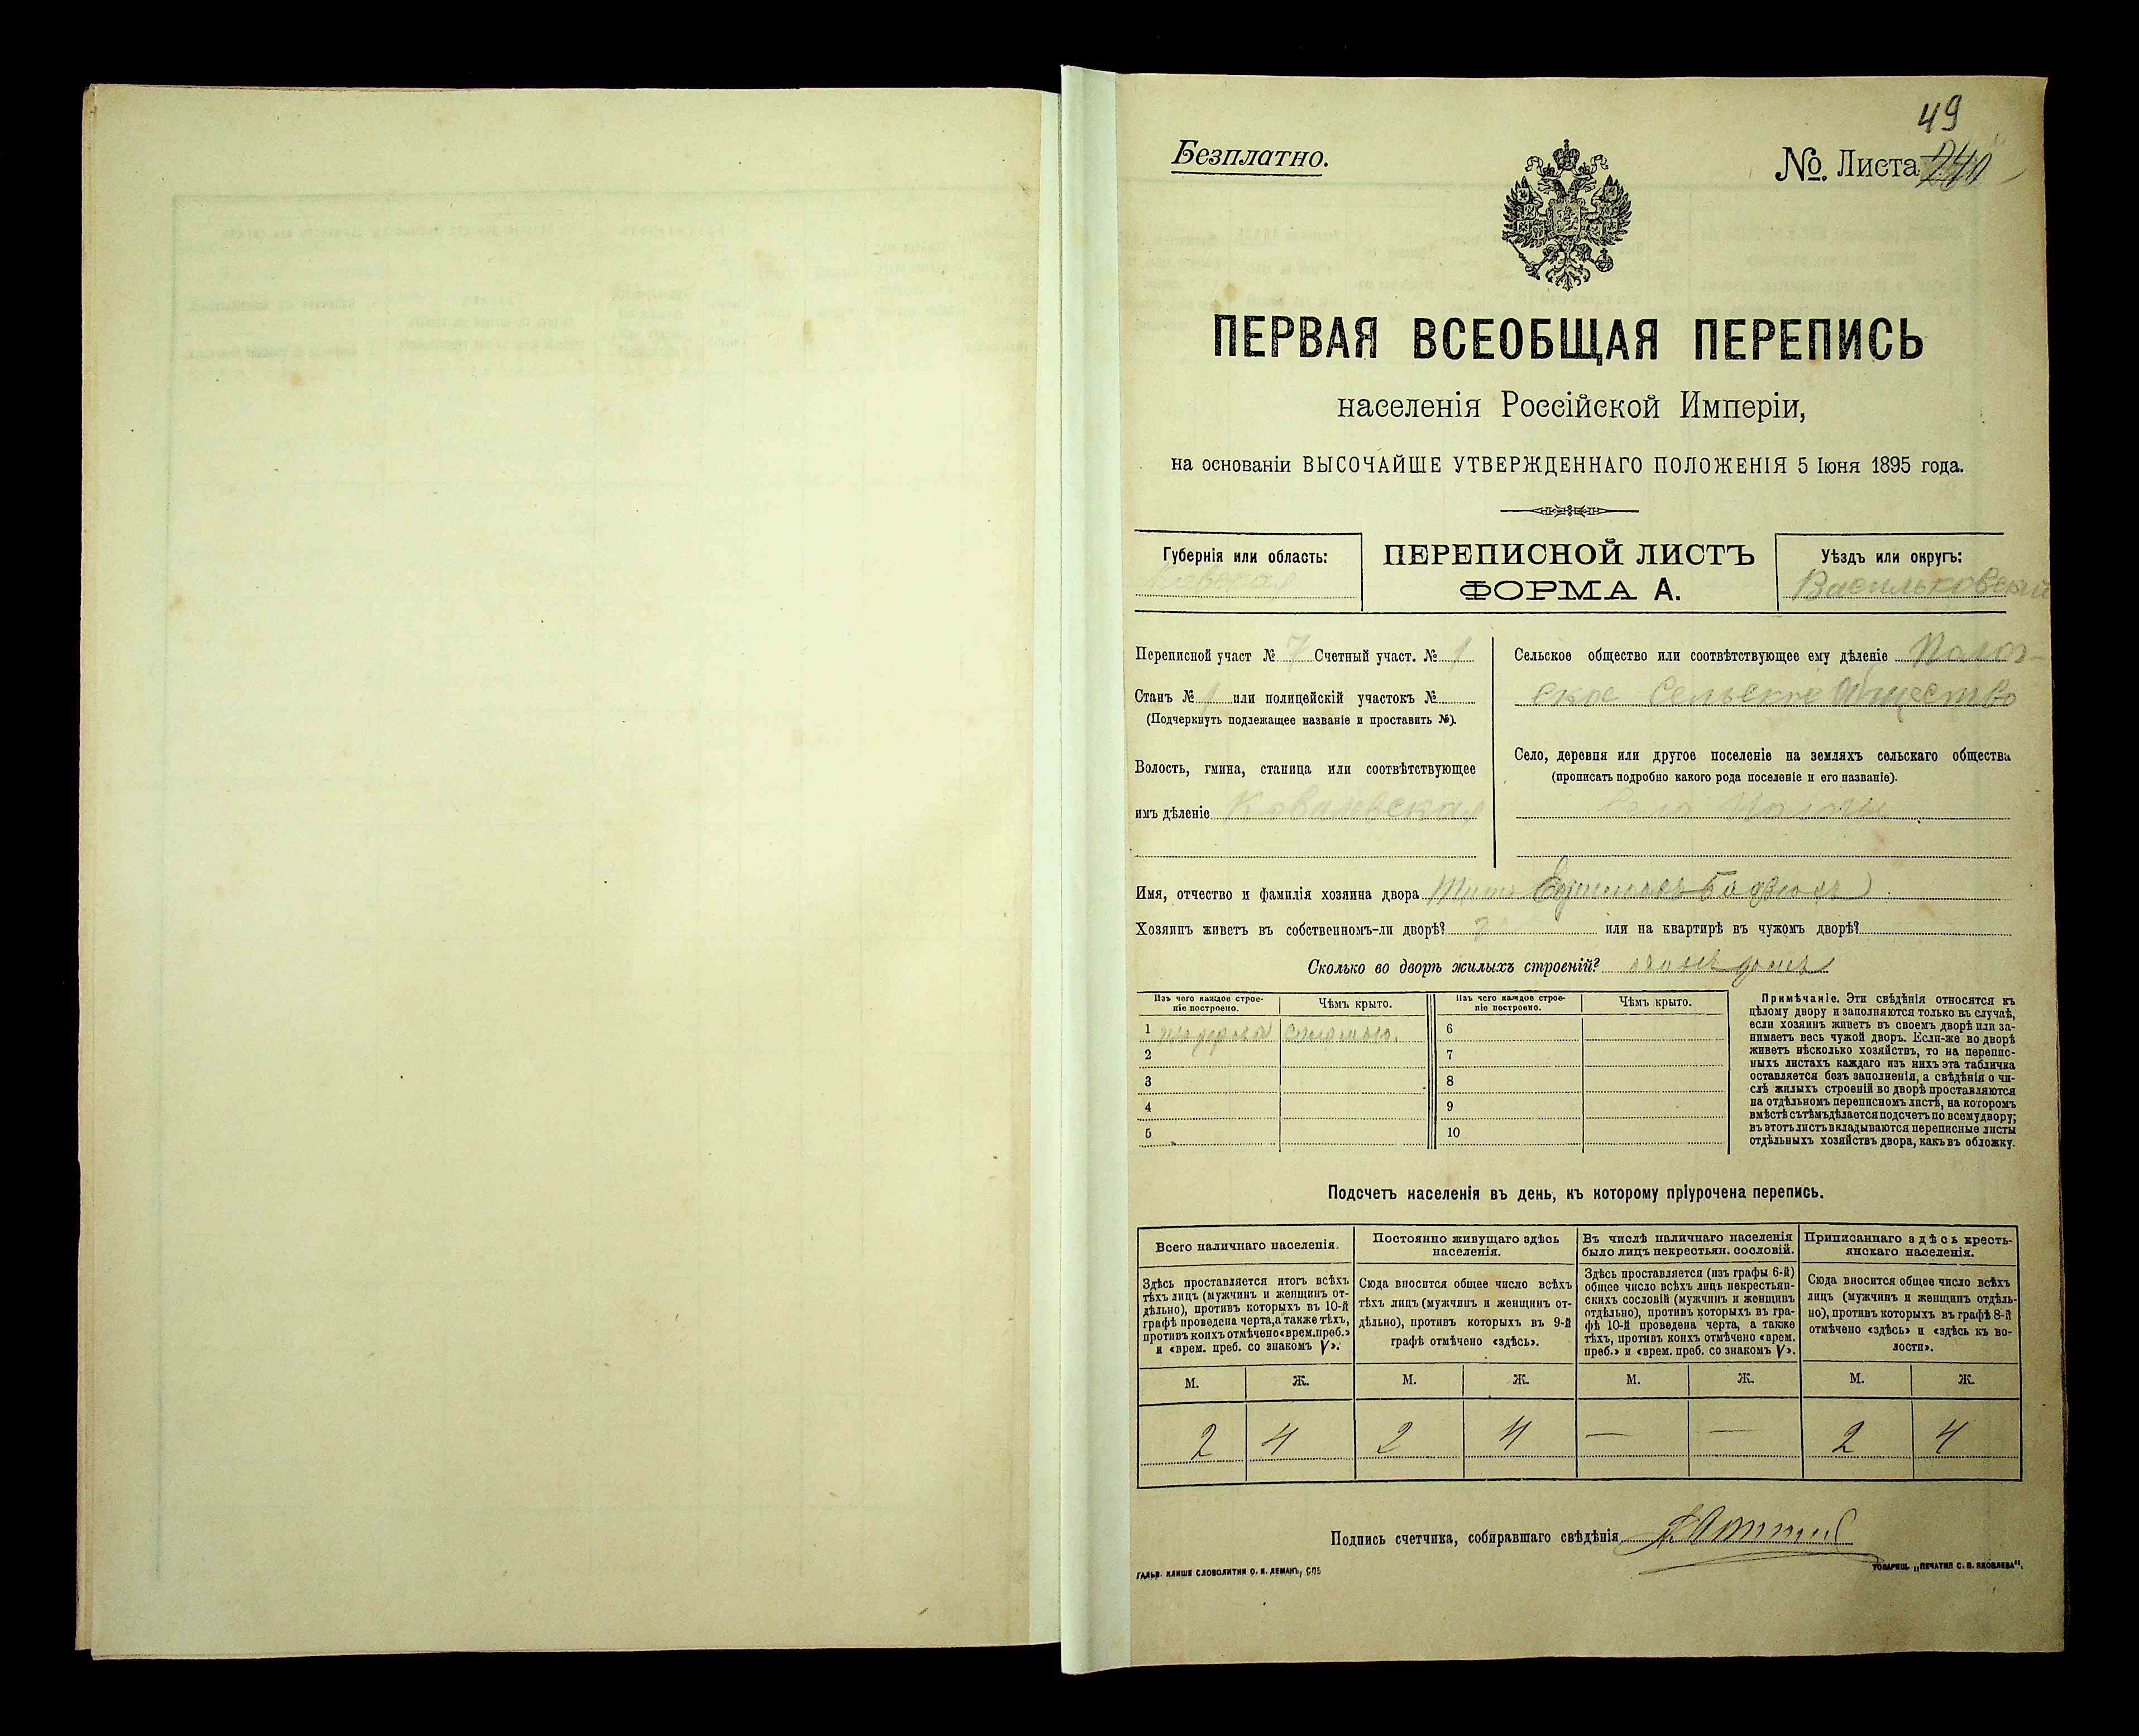 49
Безплатно.
№. Листа
ПЕРВАЯ ВСЕОБЩАЯ ПЕРЕПИСЬ
населенія Россійской Имперіи,
на основаніи ВЫСОЧАЙШЕ УТВЕРЖДЕННАГО ПОЛОЖЕНІЯ 5 Іюня 1895 года.
Губернія или область:
Кіевская
ПЕРЕПИСНОЙ ЛИСТЪ
ФОРМА А.
Уѣздъ или округъ:
Васильковскій
Переписной участ № 7 Счетный участ. № 1
Станъ № 1 или полицейскій участокъ №
(Подчеркнуть подлежащее названіе и проставить №).
Волость, гмина, станица или соотвѣтствующее
имъ дѣленіе Ковалевская
Сельское общество или соотвѣтствующее ему дѣленіе
ское Сельское Общество
Село, деревня или другое поселеніе на земляхъ сельскаго общества
(прописать подробно какого рода поселеніе и его названіе).
Село
Имя, отчество и фамилія хозяина двора
Хозяинъ живетъ въ собственномъ-ли дворѣ? или на квартирѣ въ чужомъ дворѣ?
Сколько во дворѣ жилыхъ строеній? домъ
Изъ чего каждое строе-
ніе построено.
Чѣмъ крыто.
Изъ чего каждое строе-
ніе построено.
Чѣмъ крыто.
1 соломою. 6
2 7
3 8
4 9
5 10
Примѣчаніе. Эти свѣдѣнія относятся къ
цѣлому двору и заполняются только въ случаѣ,
если хозяинъ живетъ въ своемъ дворѣ или за-
нимаетъ весь чужой дворъ. Если-же во дворѣ
живетъ нѣсколько хозяйствъ, то на перепис-
ныхъ листахъ каждаго изъ нихъ эта табличка
оставляется безъ заполненія, а свѣдѣнія о чи-
слѣ жилыхъ строеній во дворѣ проставляются
на отдѣльномъ переписномъ листѣ, на которомъ
вмѣстѣ съ тѣмъ дѣлается подсчетъ по всему двору;
въ этотъ листъ вкладываются переписные листы
отдѣльныхъ хозяйствъ двора, какъ въ обложку.
Подсчетъ населенія въ день, къ которому пріурочена перепись.
Всего наличнаго населенія.
Здѣсь проставляется итогъ всѣхъ
тѣхъ лицъ (мужчинъ и женщинъ от-
дѣльно), противъ которыхъ въ 10-й
графѣ проведена черта, а также тѣхъ,
противъ коихъ отмѣчено «врем. преб.»
и «врем. преб. со знакомъ V».
Постоянно живущаго здѣсь
населенія.
Сюда вносится общее число всѣхъ
тѣхъ лицъ (мужчинъ и женщинъ от-
дѣльно), противъ которыхъ въ 9-й
графѣ отмѣчено «здѣсь».
Въ числѣ наличнаго населенія
было лицъ некрестьян. сословій.
Здѣсь проставляется (изъ графы 6-й)
общее число всѣхъ лицъ некрестьян-
скихъ сословій (мужчинъ и женщинъ
отдѣльно), противъ которыхъ въ гра-
фѣ 10-й проведена черта, а также
тѣхъ, противъ коихъ отмѣчено «врем.
преб.» и «врем. преб. со знакомъ V».
Приписаннаго здѣсь кресть-
янскаго населенія.
Сюда вносится общее число всѣхъ
лицъ (мужчинъ и женщинъ отдѣль-
но), противъ которыхъ въ графѣ 8-й
отмѣчено «здѣсь» и «здѣсь къ во-
лости».
М. Ж. М. Ж. М. Ж. М. Ж.
2 4 2 4 — — 2 4
Подпись счетчика, собиравшаго свѣдѣнія
ГАЛЬВ. КЛИШЕ СЛОВОЛИТНИ О. И. ЛЕМАНЪ, СПБ
ТОВАРИЩ. „ПЕЧАТНЯ С. П. ЯКОВЛЕВА".